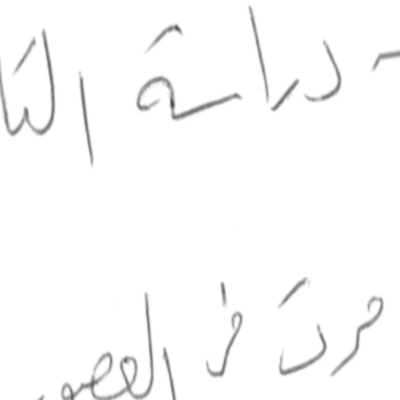 - دراسة التا
مرت في العصو